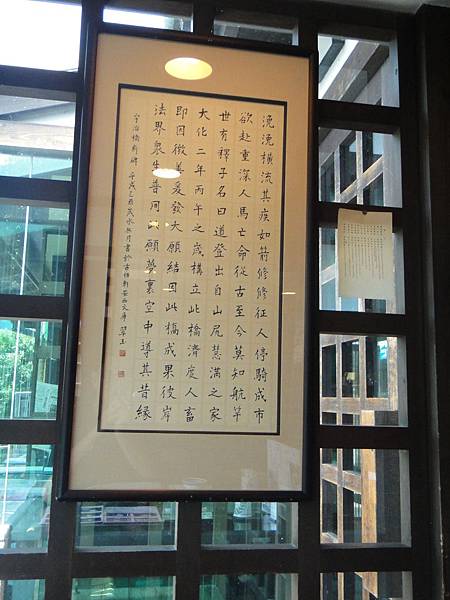 浼浼橫流其疾如箭修修征人停騎成市
欲赴重深人馬亡命從古至今莫知航竿
世有釋子名曰道登出自山尻慧滿之家
大化二年丙午之歲構立此橋濟度人畜
即因微善爰發大願結因此橋成果彼岸
法界眾生普同此願夢裏空中導其昔緣
宇治橋斷碑 平成乙酉歲水無月書於